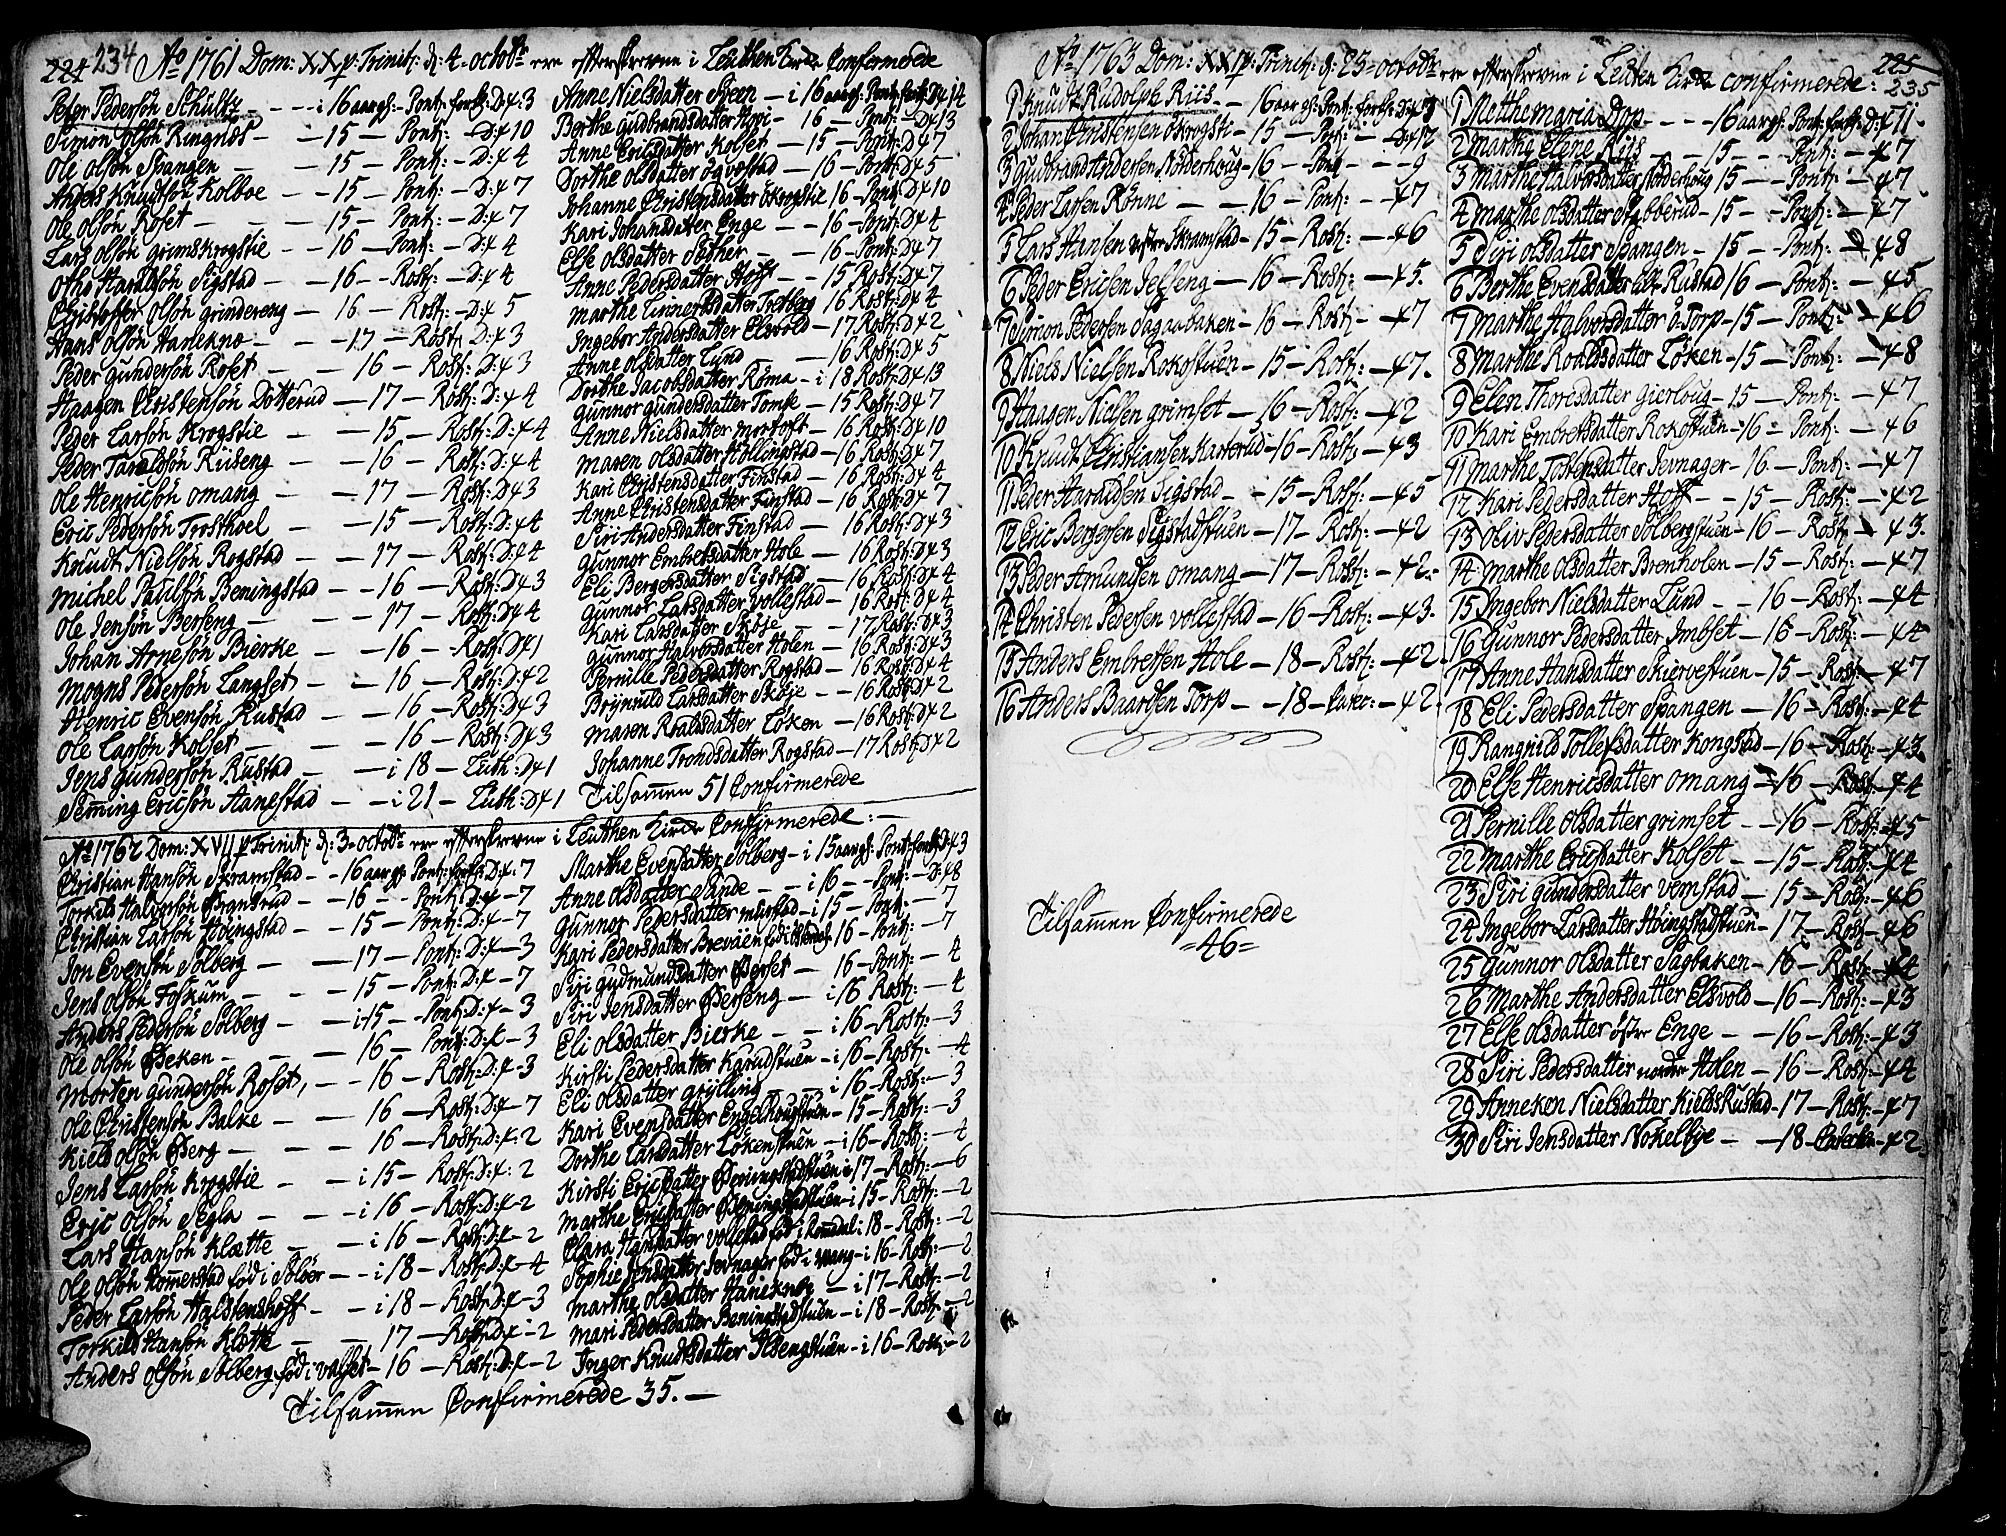 224 234 Aō 1761 Dom: XX p: Trinit: d: 4 octobr ere efterskrevne i Leuthen Kirke Confirmerede
Peter Pedersön Schultz - - - i 16 aargl: Pont: forkl: D: 43
Simon Olsön Ringnæs - - 15 - Pont: - D: 410
Ole Olsön Spangen - - 15 - Pont: - D: 44
Anders Knudtsön Kolboe - - 15 - Pont: - D: 47
Ole Olsön Roset - - 15 - Pont: - D: 47
Lars Olsön Grimskrogstie - - 16 - Pont: - D: 44
Haraldsön Sigstad - - 16 - Rost: - D: 44
Christoffer Olsön Grindereng - 16 - Rost: - D: 45
Hans Olsön Hanekno - - 17 - Rost: D: 43
Peder Gundersön Roset - - 16 - Rost: D: 43
Haagen Christensön Dötterud - 17 - Rost: D: 44
Peder Larsön Krogstie - - 15 - Rost: D: 44
Peder Taraldsön Riiseng - - 16 - Rost: D: 44
Ole Henricsön Omang - - 17 - Rost: D43
Eric Pedersön Trosthoel - 15 - Rost: D: 44
Knudt Nielsön Rogstad - - 17 - Rost: D: 44
Michel Paulsön Beningstad - - 16 - Rost: D43
Ole Jensön Berseng - - 17 - Rost: D44
Johan Arnesön Bierke - - 16 - Rost: D41
Mogns Pedersön Langset - - 16 - Rost: D: 42
Henric Evensön Rustad - - 16 - Rost: D43
Ole Larsön Kolset - - 16 - Rost: D43
Jens Gundersön Rustad - - i 18 - Luth: D41
Semming Ericsön Aanestad - - i 21 - Luth: D41
Anne Nielsdatter Steen - i 16 aargl Pont: forkl: D414
Berthe Gudbrandsdatter Hovi - 16 - Pont: - D413
Anne Ericsdatter Kolset - 15 - Pont: D47
Dorthe Olsdatter Ögvolstad - 16 - Pont: D45
Johanne Christensdatter Ökrogstie 16 - Pont: D410
Kari Johansdatter Enge - - 16 - Pont: D44
Else Olsdatter Sæther - - 16 - Pont: D47
Anne Pedersdatter Hoff - - 15 Rost: D47
Marthe Linnertsdatter Torberg 16 Rost: D44
Ingebor Andersdatter Elsvold - 17 Rost: D42
Anne Olsdatter Lund - - 16 Rost: D45
Dorthe Jacobsdatter Röma - i 18 Rost: D413
Gunnor Gundersdatter Tomse - 15 Rost: D47
Anne Nielsdatter Mortoft - 16 Rost: D410
Maren Olsdatter Hollingstad - 16 Rost: D47
Kari Christensdatter Finstad - 16 Rost: D44
Anne Christensdatter Finstad - 16 Rost: D47
Siri Andersdatter Finstad - 16 Rost: D43
Gunnor Embretsdatter Hole - 16 Rost: D43
Eli Bergersdatter Sigstad - 16 Rost: D44
Gunnor Larsdatter Vollestad - 16 Rost: D44
Kari Larsdatter Skøje - - 17 Rost: D43
Gunnor Halvorsdatter Holen - 16 Rost: D43
Pernille Pedersdatter Rogstad - 16 Rost: D44
Brynnild Larsdatter Skøje - - 16 Rost: D42
Maren Roalsdatter Löken - 16 Rost: D42
Johanne Trondsdatter Rogstad - 17 Rost: D42
Tilsamen 51 Confirmerede
Aō 1762 Dom: XVII p Trinit: d: 3 octobr ere efterskrevne i Leuthen Kirke Confirmerede: -
Christian Hansön Skramstad - - 16 aargl: Pont: forkl: D: 4: 7
Torkild Halvorsön Grønsrud - - 16 - - Pont: D: 4 - 7
Christian Larsön Hvingstad - - 15 - Pont: D: 4 - 7
Jon Evensön Solberg - - 17 - Pont: D: 4 - 3
Jens Olsön Foskum - - 15 - Pont: D: 4 - 7
Anders Pedersön Solberg - - i 15 - Pont: D: 4 - 3
Ole Olsön Beken - - - 16 - Pont: D: 4 - 3
Morten Gundersön Roset, - - 16 - Rost: D: 4 - 3
Ole Christensön Balke - - 16 - Rost: D: 4 - 7
Kield Olsön Berg - - - 16 - Rost: D: 4: 2
Jens Larsön Krogstie - - i 15 - Rost: D: 4: 2
Eric Olsön Segla - - i 16 - Rost: D: 4 - 2
Lars Hansön Klætte - - i 16 - Rost: D: 4 - 2
Ole Olsön Komerstad fød i Soløer - - i 18 - Rost: D: 4 - 4
Peder Larsön Halstenshoff - - i 18 - Rost: D: 4 - 3
Torkild Hansön Klætte - - 17 - Rost: D: 4 - 2
Anders Olsön Solberg fød i Valset - 16 - Rost: D: 4 - 2
Marthe Evensdatter Solberg - i 15 aargl: Pont: forkl: D: 43
Anne Olsdatter Sande - - i 16 - - Pont: - D: 48
Gunnor Pedersdatter Mustad - i 15 - Pont: - 7
Kari Pedersdatter Brevåen fød i Østerdal 16 - Pont: - 7
Siri Gudmundsdatter Berset - 16 - Pont: - 4
Siri Jensdatter Berseng - i 16 Rost: - 4
Eli Olsdatter Bierke - - i 16 - Rost: - 3
Kirsti Pedersdatter Karudstuen - i 16 - Rost: - 4
Eli Olsdatter Grylling - - i 16 - Rost: - 3
Kari Evensdatter Engelhougstuen - 15 - Rost: - 3
Dorthe Larsdatter Lökenstuen - i 16 - Rost: - 4
Kirsti Ericsdatter Beningstadstuen i 17 - Rost: - 6
Marthe Ericsdatter Beningstadstuen - i 15 - Rost: - 2
Clara Hansdatter Vollestad fød i Romdal i 18 - Rost: - 2
Sophie Jensdatter Jevnager fød i Vang - i 16 - Rost: - 2
Marthe Olsdatter Haneknoe - i 17 - Rost: - 2
Mari Pedersdatter Beningstadstuen - i 18 - Rost: - 2
Inger Knudtsdatter Ilsengstuen - i 16 - Rost: - 2
Tilsamen Confirmerede 35. -
Aō 1763 Dom: XXI p: Trinit: d: 23 octobr ere efterskrevne i Leuten Kirke confirmerede: 225 235
1 Knudt Rudolph Riis - - 16 aargl: Pont: forkl: D: 43
2 Johan Christensen Økrogsti - 15 - Pont: - D: 412
3 Gudbrand Andersen Nöderhoug - 16 - Pont - - - 9
4 Peder Larsen Rønne - - 16 - Pont: - - 47
5 Lars Hansen østre Skramstad - 15 - Rost: - 46
6 Peder Ericsen Jelseng - 16 - Rost: - 45.
7 Simon Pedersen Sagaabaken - 16 - Rost: - 47
8 Niels Nielsen Rokostuen - 15 - Rost: - 47.
9 Haagen Nielsen Grimset - 16 - Rost: - 42
10 Knudt Christiansen Karterud - 16 - Rost: - 43
11 Peder Haraldsen Sigstad - - 15 - Rost: - 45
12 Eric Bergersen Sigstadstuen - 17 - Rost: - 42
13 Peder Amundsen Omang - 17 - Rost: - 42-
14 Christen Pedersen Vollestad - 16 - Rost: - 43.
15 Anders Embretsen Hole - 18 - Rost: - 42.
16 Anders Baardsen Torp - - 18 - Catec: - 42.
Tilsamen Confirmerede
=46=
1 Metthe Maria Dop - - - 16 aargl: Pont: forkl: D: 411
2 Marthe Elene Riis - - 15 - - Pont: - 47
3 Marthe Halvorsdatter Nöderhoug 15 - - Pont: - 47
4 Marthe Olsdatter Stybberud - 15 - - Pont: - 47
5 Siri Olsdatter Spangen - 15 - - Pont: - 48
6 Berthe Evensdatter Rustad 16 - Pont: - 45
7 Marthe Halvorsdatter ö: Torp - 15 - Pont: - 46
8 Marthe Roalsdatter Löken - 15 - Pont: - 48
9 Elen Thoresdatter Gierloug - 15 - Pont: - 47
10 Kari Embretsdatter Rokostuen - 16 - Pont: - 46
11 Marthe Tostensdatter Jevnager - 16 - Pont: - 47
12 Kari Pedersdatter Hoff - - 15 - Rost: - 42
13 Oliv Pedersdatter Solbergstuen - 16 - Rost: - 43.
14 Marthe Olsdatter Brenholen - 15 - Rost: - 47
15 Ingebor Nielsdatter Lund - - 16 - Rost: - 44
16 Gunnor Pedersdatter Imbset - 16 - Rost: - 44
17 Anne Hansdatter Skiervestuen - 15 - Rost: - 47
18 Eli Pedersdatter Spangen - 16 - Rost: - 44
19 Rangnild Tollefsdatter Kongstad - 16 - Rost: - 43.
20 Else Henricsdatter Omang - 16 - Rost: - 44
21 Pernille Olsdatter Grimset - - 16 - Rost: - 45
22 Marthe Ericsdatter Kolset - - 15 - Rost: - 44
23 Siri Gundersdatter Vemstad - 15 - Rost: - 46
24 Ingebor Larsdatter Hvingstadstuen - 17 - Rost: - 46
25 Gunnor Olsdatter Sagbaken - 16 - Rost: - 44
26 Marthe Andersdatter Elsvold - 16 - Rost: - 43
27 Else Olsdatter östre Enge - - 16 - Rost: - 43
28 Siri Pedersdatter nordre Holen - 16 - Rost: - 44
29 Anneken Nielsdatter Kields Rustad - 17 - Rost: - 47
30 Siri Jensdatter Nokelbye - - 18 - Catech: - 42.